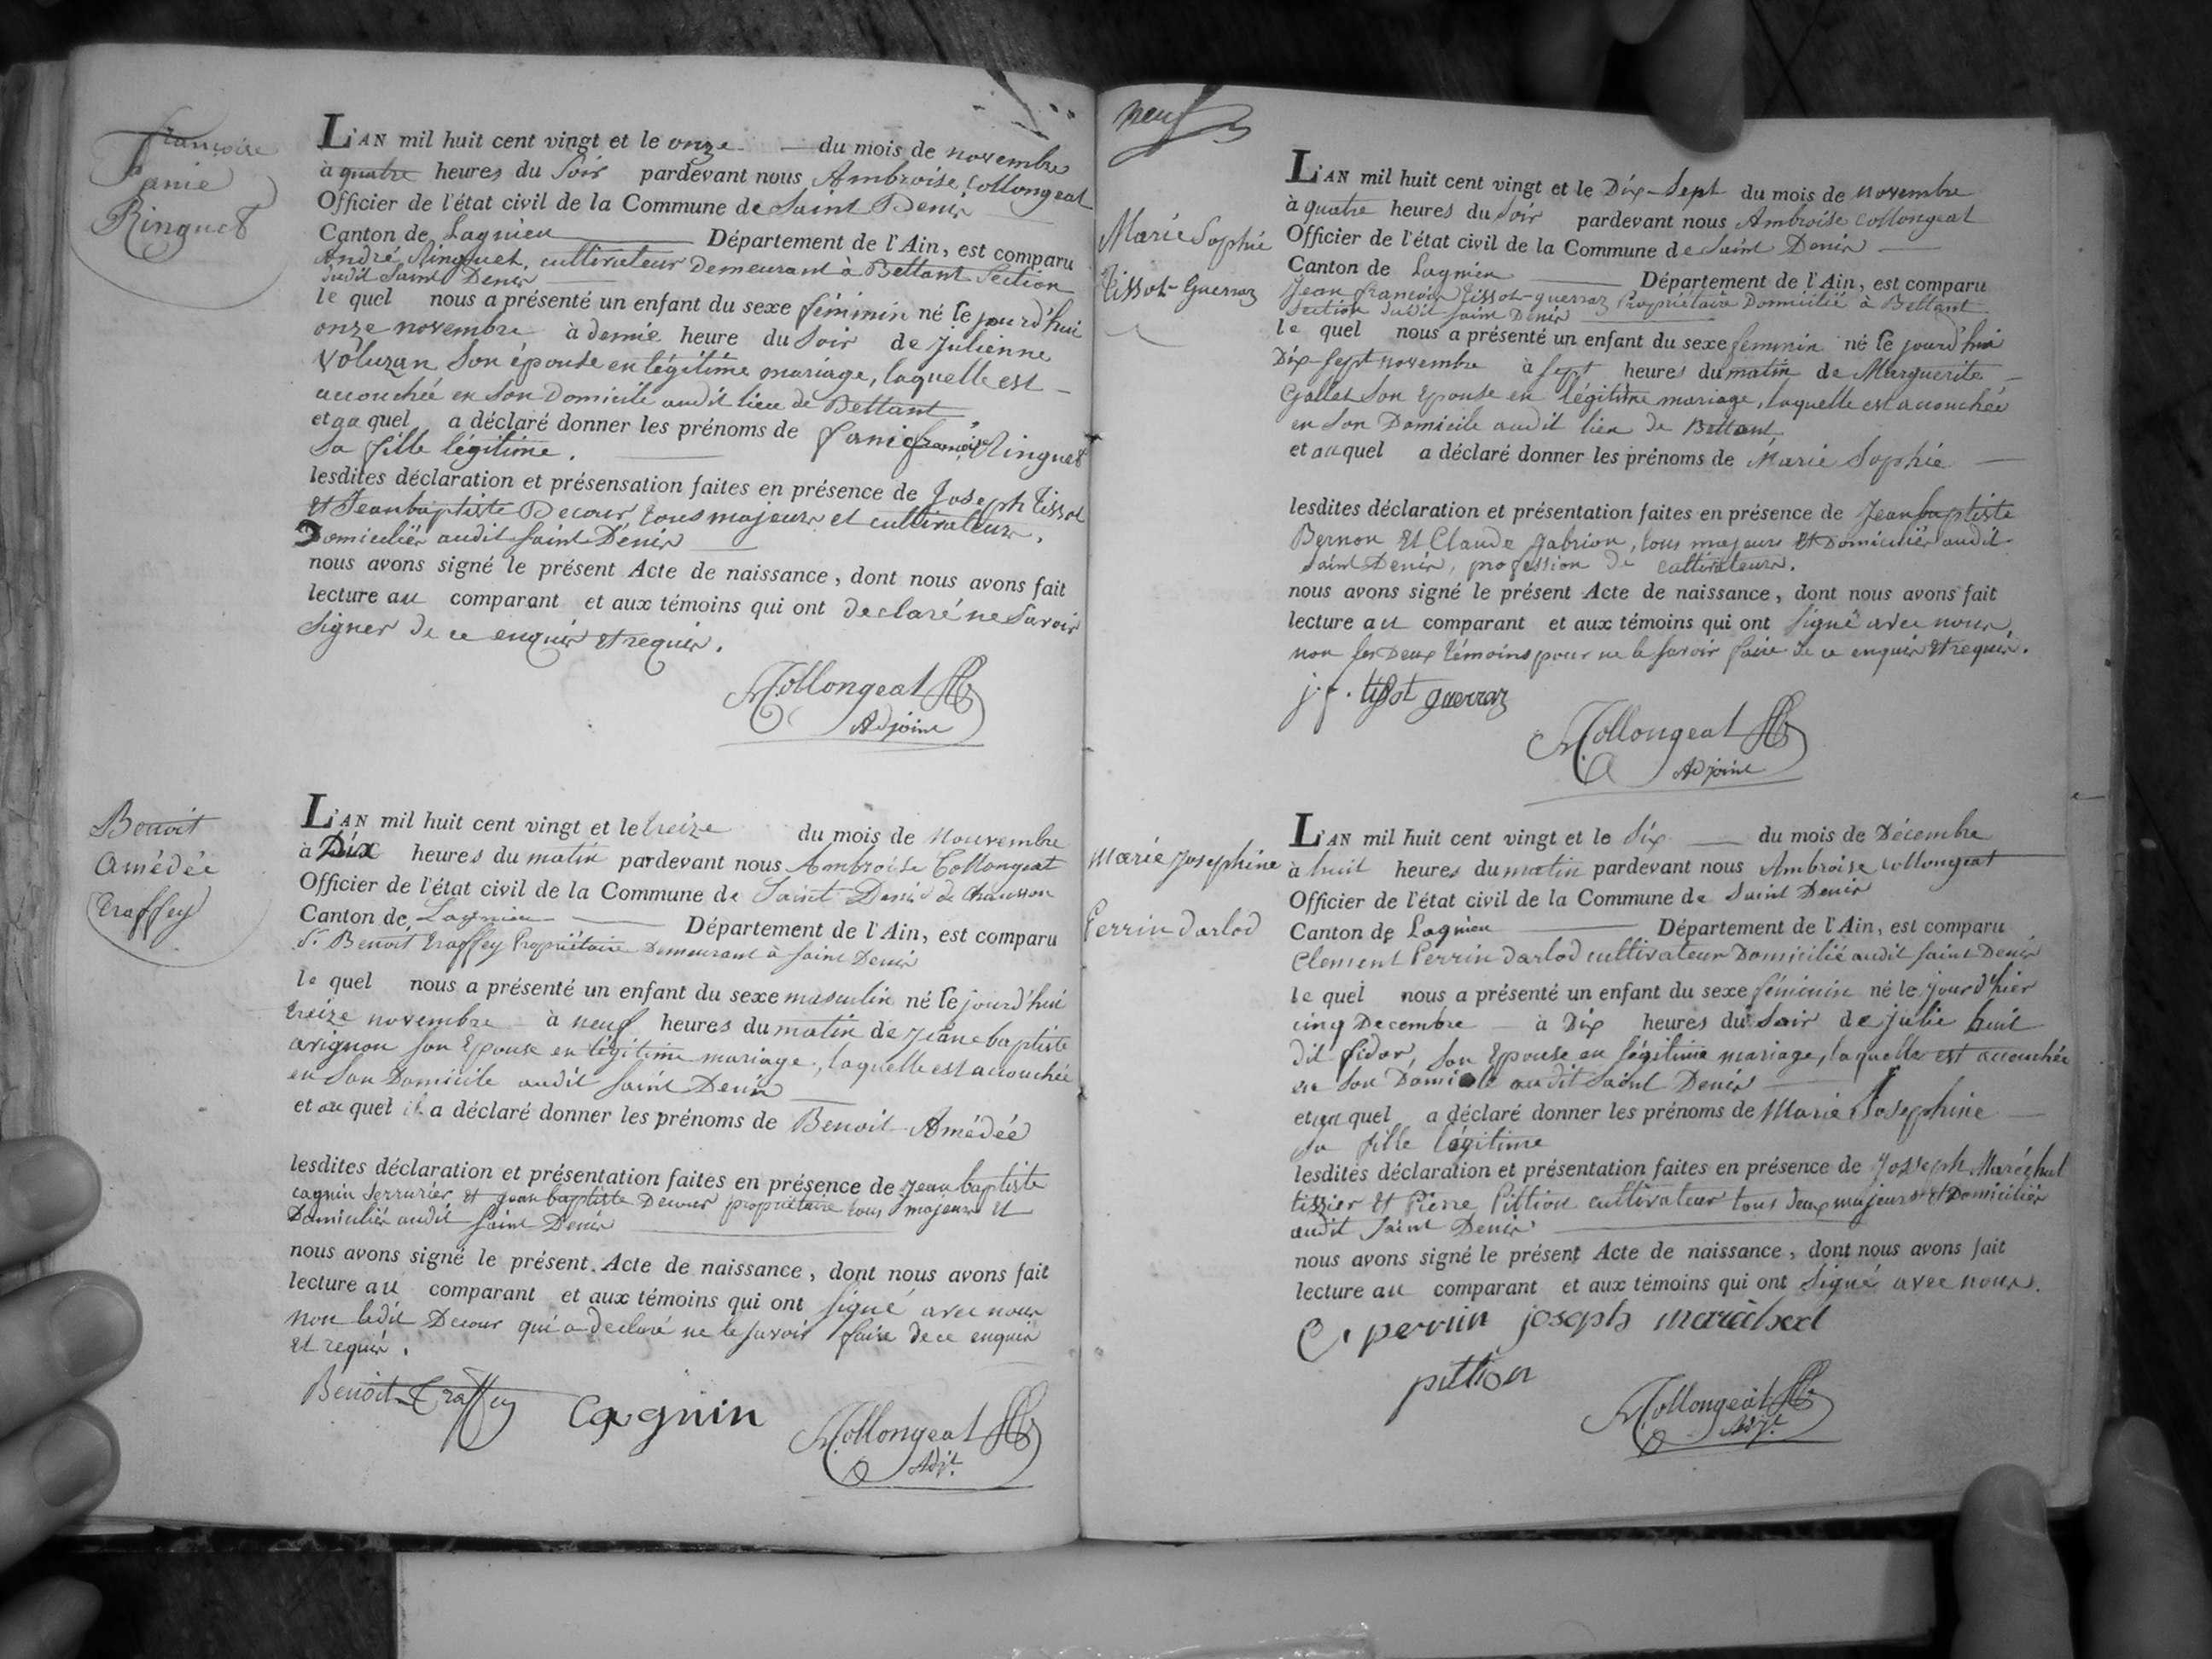 françoise
fanie
Ringuet
L'AN mil huit cent vingt et le onze du mois de novembre
à quatre heures du Soir pardevant nous Ambroise Collongeat
Officier de l'état civil de la Commune de Saint Denis
Canton de Lagnieu Département de l'Ain, est comparu
André Ringuet, cultivateur Demeurant à Bettant Section
dudit Saint Denis
le quel nous a présenté un enfant du sexe féminin né le jourd'hui
onze novembre à demie heure du Soir de Julienne
Voluzan Son épouse en légitime mariage, laquelle est
accouchée en Son Domicile audit lieu de Bettant
et au quel a déclaré donner les prénoms de fanie françoise Ringuet
Sa fille légitime.
lesdites déclaration et présensation faites en présence de Joseph Tissot
et Jeanbaptiste Decour tous majeurs et cultivateurs,
Domiciliés audit Saint Dénis
nous avons signé le présent Acte de naissance, dont nous avons fait
lecture au comparant et aux témoins qui ont declaré ne Savoir
Signer de ce enquis et requis.
Collongeat
Adjoint
Benoit
Amédée
Traffey
L'AN mil huit cent vingt et le treize du mois de Nouvembre
à Dix heures du matin pardevant nous Ambroise Collongeat
Officier de l'état civil de la Commune de Saint Denis de Chausson
Canton de Lagnieu Département de l'Ain, est comparu
Sr. Benoit Traffey Propriétaire Demeurant à Saint Denis
le quel nous a présenté un enfant du sexe masculin né le jourd'hui
treize novembre à neuf heures du matin de Jeanebaptiste
avignon son Epouse en légitime mariage, laquelle est accouchée
en Son Domicile audit Saint Denis
et au quel il a déclaré donner les prénoms de Benoit Amédée
lesdites déclaration et présentation faites en présence de Jean baptiste
cagnin Serrurier et Jean baptiste Decour propriétaire tous majeurs et
Domiciliés audit Saint Denis
nous avons signé le présent Acte de naissance, dont nous avons fait
lecture au comparant et aux témoins qui ont Signé avec nous
Non ledit Decour qui a declaré ne le savoir faire de ce enquis
et requis.
Benoit Traffey Cagnin Collongeat
Adjt.
neuf
Marie Sophie
Tissot-Guerraz
L'AN mil huit cent vingt et le Dix-Sept du mois de novembre
à quatre heures du Soir pardevant nous Ambroise Collongeat
Officier de l'état civil de la Commune de Saint Denis
Canton de Lagnieu Département de l'Ain, est comparu
Jean françois Tissot-guerraz Propriétaire Domicilié à Bettant
Section dudit Saint Denis
le quel nous a présenté un enfant du sexe feminin né le jourd'hui
Dix-Sept novembre à Sept heures du matin de Marguerite
Gallet Son Epouse en légitime mariage, laquelle est accouchée
en Son Domicile audit lieu de Bettant
et au quel a déclaré donner les prénoms de Marie Sophie
lesdites déclaration et présentation faites en présence de Jeanbaptiste
Bernon Et Claude Gabrion, tous majeurs et Domiciliés audit
Saint Denis, profession de cultivateurs.
nous avons signé le présent Acte de naissance, dont nous avons fait
lecture au comparant et aux témoins qui ont Signé avec nous,
non les Deux témoins pour ne le savoir faire de ce enquis et requis.
j. f. tissot guerraz
Collongeat
Adjoint
Marie Josephine
Perrin darlod
L'AN mil huit cent vingt et le Six du mois de Décembre
à huit heures du matin pardevant nous Ambroise Collongeat
Officier de l'état civil de la Commune de Saint Denis
Canton de Lagnieu Département de l'Ain, est comparu
Clement Perrin darlod cultivateur Domicilié audit saint Denis
le quel nous a présenté un enfant du sexe féminin né le jour d'hier
cinq Decembre à Dix heures du Soir de julie huit
dit fidor, Son Epouse en légitime mariage, laquelle est accouchée
en Son Domicile audit Saint Denis
et au quel a déclaré donner les prénoms de Marie Josephine
Sa fille légitime
lesdites déclaration et présentation faites en présence de Josseph Maréchal
tissier et Pierre Pittion cultivateur tous deux majeurs et Domiciliés
audit Saint Denis
nous avons signé le présent Acte de naissance, dont nous avons fait
lecture au comparant et aux témoins qui ont Signé avec nous.
C. perrin joseph marèchal
pittion
Collongeat
Adjt.